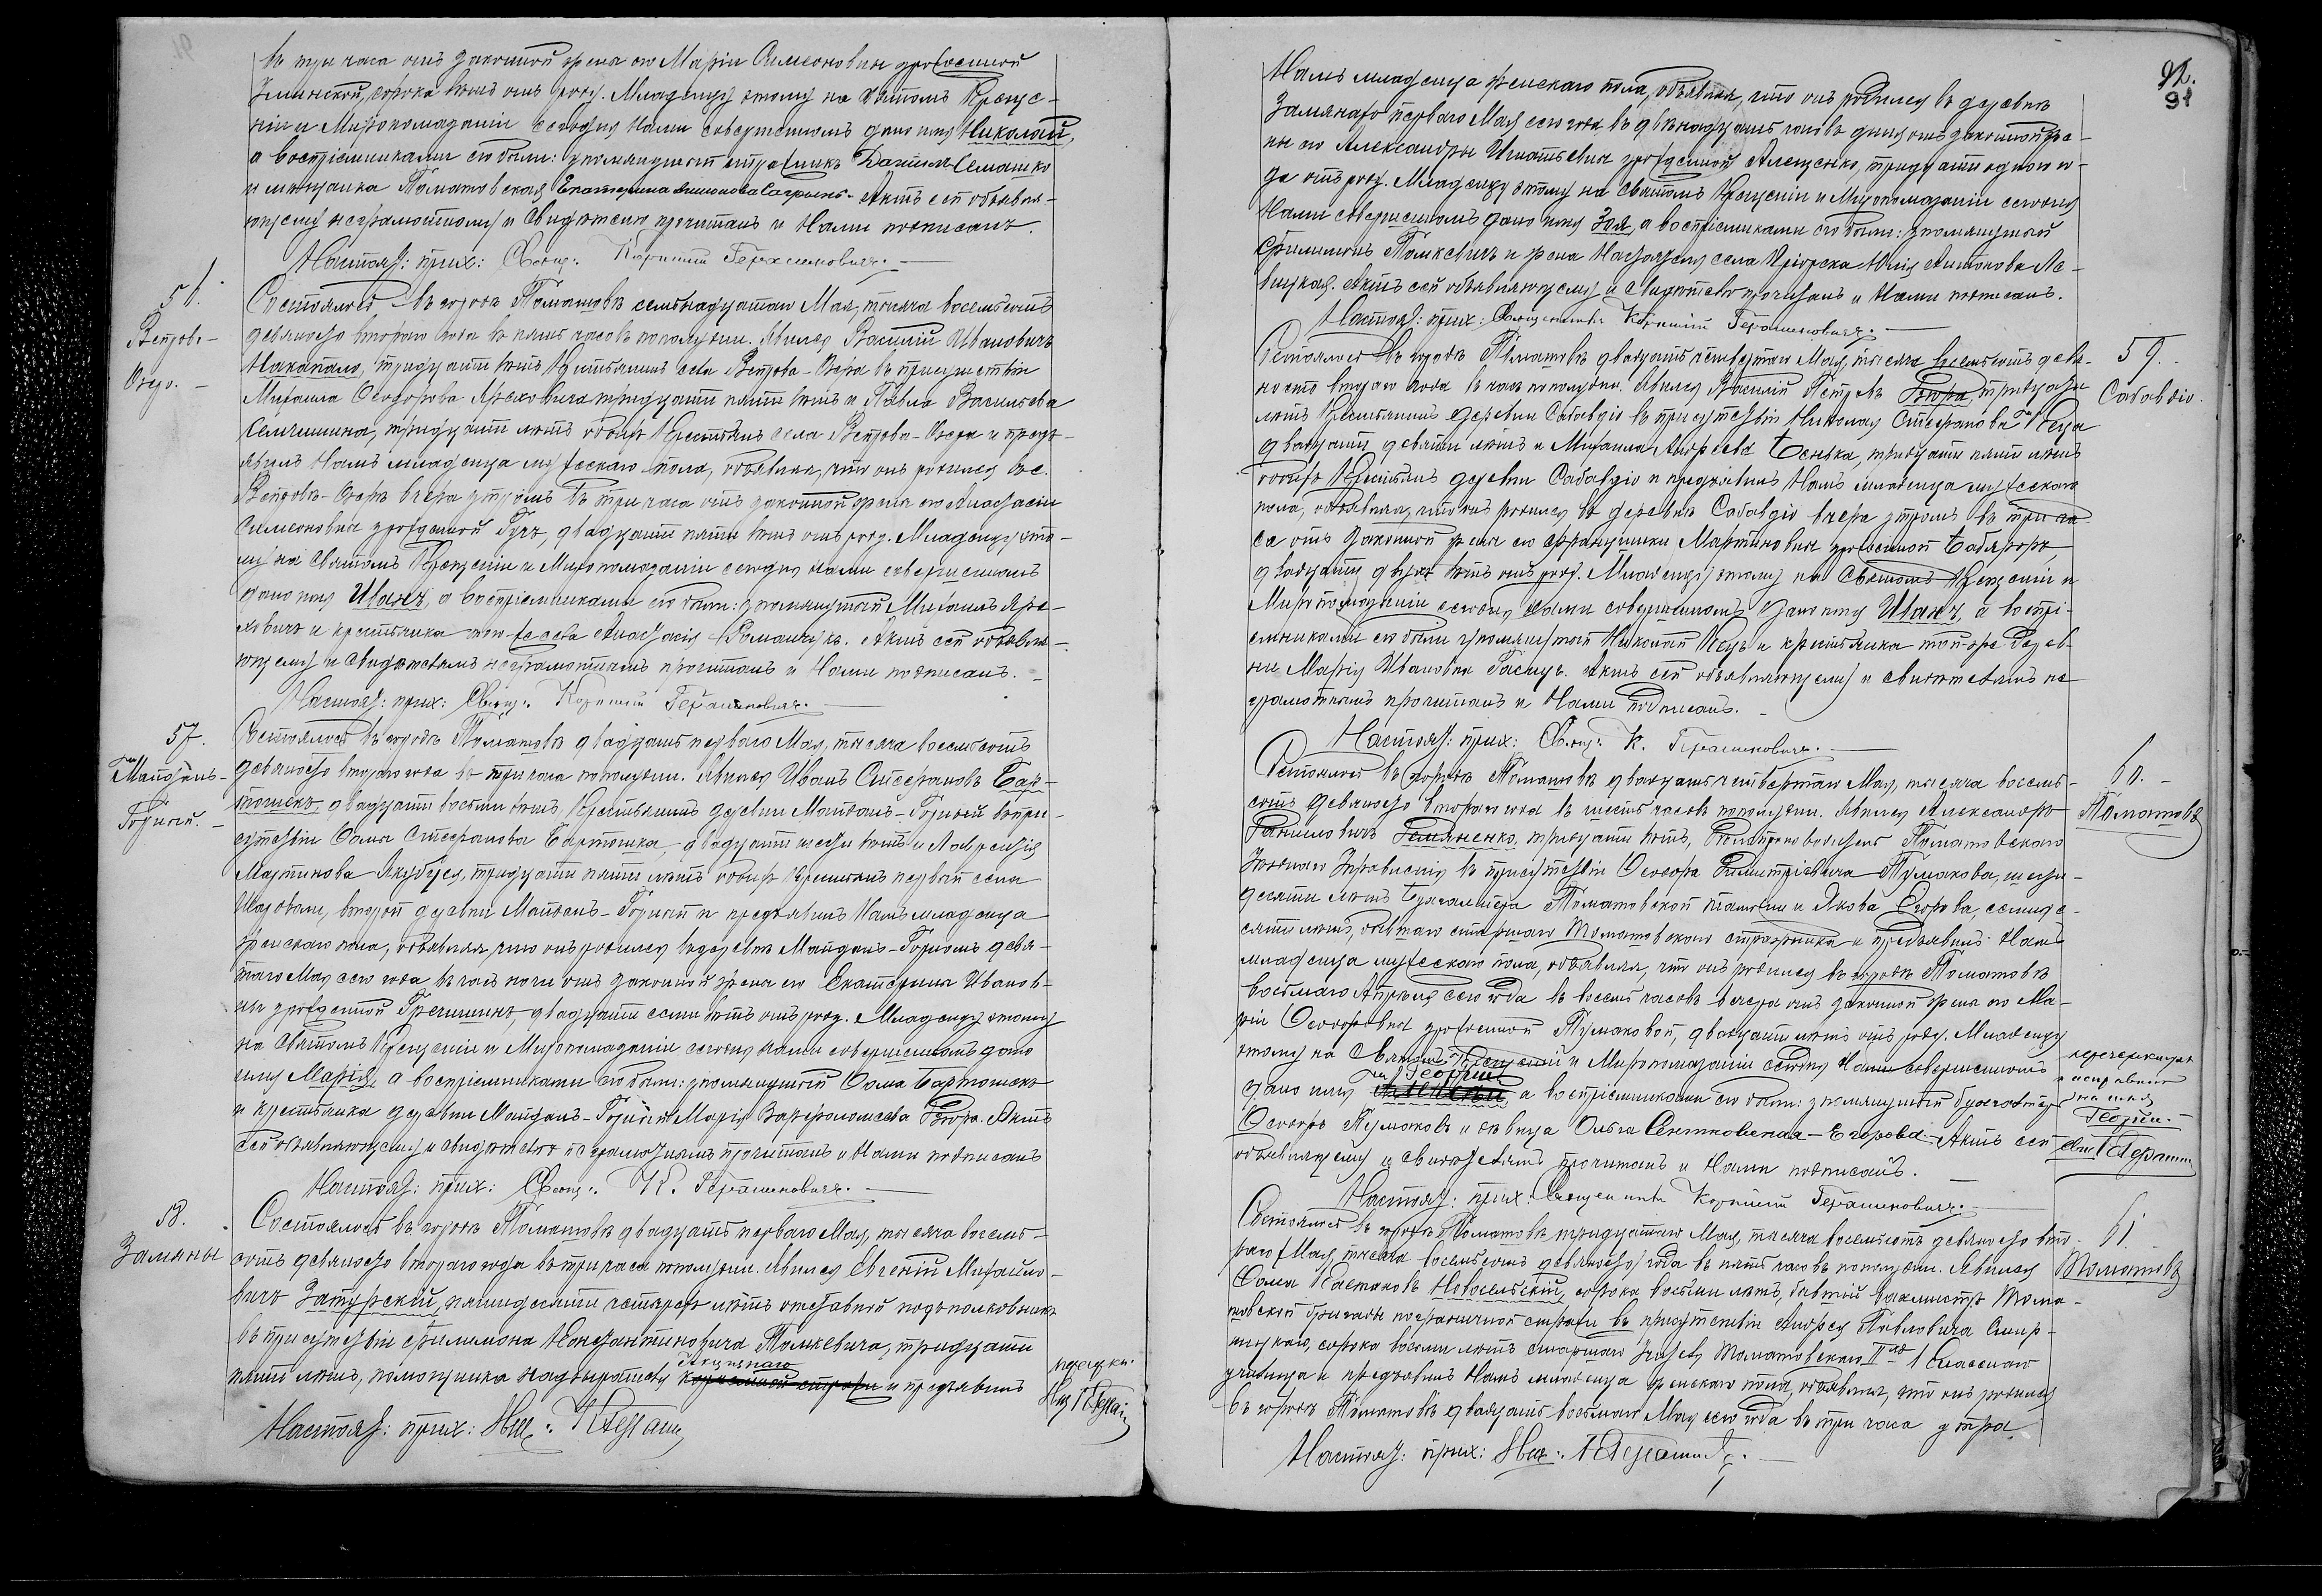 въ три часа отъ законной жены его Маріи Симеоновны урожденной
Злинской, сорока лѣтъ отъ роду. Младенцу этому на Святомъ Креще-
ніи и Миропомазаніи сегодня Нами совершенномъ дано имя Николай,
а воспріемниками его были: упомянутый стражникъ Даніилъ Семашко
и мѣщанка Томашовская Екатерина Антонова. Актъ сей объявля-
ющему неграмотному и Свидѣтелю прочитанъ и Нами подписанъ.
Настоят: прих: Свящ: Корнилій Герасимовичъ.
56.
Ветрово-
Озеро.
Состоялось въ городѣ Томашовѣ семнадцатаго Мая, тысяча восемьсотъ
девяносто втораго года въ пять часовъ пополудни. Явился Василій Ивановичъ
Накопало, тридцати лѣтъ Крестьянинъ села Ветрово-Озера въ присутствіи
Михаила Ѳеодорова Ярековича тридцати пяти лѣтъ и Павла Васильева
Семчишина, тридцати лѣтъ обоихъ Крестьянъ села Ветрово-Озера и предъ-
явилъ Намъ младенца мужескаго пола, объявляя, что онъ родился въ с.
Ветровѣ-Озерѣ вчера утромъ въ три часа отъ законной жены его Анастасіи
Симеоновны урожденной Гуч, двадцати пяти лѣтъ отъ роду. Младенцу это-
му на Святомъ Крещеніи и Миропомазаніи сегодня Нами совершенномъ
дано имя Иванъ, а воспріемниками его были: упомянутый Михаилъ Яре-
ковичъ и крестьянка того-же села Анастасія Романчукъ. Актъ сей объявля-
ющему и Свидѣтелямъ неграмотнымъ прочитанъ и Нами подписанъ.
Настоят: прих: Свящ: Корнилій Герасимовичъ.
57.
Майданъ-
Горный.
Состоялось въ городѣ Томашовѣ двадцать перваго Мая, тысяча восемьсотъ
девяносто втораго года въ три часа пополудни. Явился Иванъ Стефановъ Бар-
тошекъ, двадцати восьми лѣтъ, Крестьянинъ деревни Майданъ-Горный въ при-
сутствіи Ѳомы Стефанова Бартошка, двадцати шести лѣтъ и Лаврентія
Мартинова Якубца, тридцати пяти лѣтъ обоихъ Крестьянъ первый села
Шаровали, второй деревни Майданъ-Горный и предъявилъ Намъ младенца
женскаго пола, объявляя, что онъ родился въ деревнѣ Майданъ-Горномъ девя-
таго Мая сего года въ часъ ночи отъ законной жены его Екатерины Иванов-
ны урожденной Гречишинъ, двадцати семи лѣтъ отъ роду. Младенцу этому
на Святомъ Крещеніи и Миропомазаніи сегодня нами совершенномъ дано
имя Марія, а воспріемниками его были: упомянутый Ѳома Бартошекъ
и крестьянка деревни Майданъ-Горный Марія Варфоломеева Бзюра. Актъ
сей объявляющему и свидѣтелямъ неграмотнымъ прочитанъ и Нами подписанъ
Настоят: прих: Свящ: К. Герасимовичъ.
58.
Замяны
Состоялось въ городѣ Томашовѣ двадцать перваго Мая, тысяча восемь-
сотъ девяносто втораго года въ три часа пополудни. Явился Евгеній Михайло-
вичъ Затурскій, пятидесяти четырехъ лѣтъ отставной подполковникъ
въ присутствіи Филимона Константиновича Томкевича, тридцати
пяти лѣтъ, помощника надзирателя акцизнаго и предъявилъ
Настоят: прих: Свящ: К Гераси
92.
91
Намъ младенца женскаго пола, объявляя, что онъ родился въ деревнѣ
Замянахъ перваго Мая сего года въ двѣнадцать часовъ дня отъ законной же-
ны его Александры Игнатьевны урожденной Алещенко, тридцати одного го-
да отъ роду. Младенцу этому на Святомъ Крещеніи и Миропомазаніи сегодня
Нами совершенномъ дано имя Зоя, а воспріемниками его были: упомянутый
Филимонъ Томкевичъ и жена Надзирателя села Юлія Антонова Ле-
вицкая. Актъ сей объявляющему и свидѣтелю прочитанъ и Нами подписанъ.
Настоят: прих: Священникъ Корнилій Герасимовичъ.
59.
Сабавдіо.
Состоялось въ городѣ Томашовѣ двадцать четвертаго Мая, тысяча восемьсотъ девя-
носто втораго года въ часъ пополудни. Явился Василій Петровъ Бзюра, тридцати
лѣтъ Крестьянинъ деревни Сабавдіо въ присутствіи Николая Стефанова Кеца
двадцати девяти лѣтъ и Михаила Андреева Сенька, тридцати пяти лѣтъ
обоихъ Крестьянъ деревни Сабавдіо и предъявилъ Намъ младенца мужескаго
пола, объявляя, что онъ родился въ деревнѣ Сабавдіо вчера утромъ въ три ча-
са отъ законной жены его Францишки Мартиновны урожденной Бабяроръ,
двадцати двухъ лѣтъ отъ роду. Младенцу этому на Святомъ Крещеніи и
Миропомазаніи сегодня Нами совершенномъ дано имя Иванъ, а воспрі-
емниками его были упомянутый Николай Кецъ и крестьянка той-же дерев-
ни Марія Иванова Гасюкъ. Актъ сей объявляющему и свидѣтелямъ не-
грамотнымъ прочитанъ и Нами подписанъ.
Настоят: прих: Свящ: К. Герасимовичъ.
60.
Томашовъ
Состоялось въ городѣ Томашовѣ двадцать четвертаго Мая, тысяча восемь-
сотъ девяносто втораго года въ шесть часовъ пополудни. Явился Александръ
Даниловичъ Демяненко, тридцати лѣтъ, Томашовскаго
Уѣзднаго Управленія въ присутствіи Ѳеодора Димитріевича Тумакова, шести-
десяти лѣтъ Бухгалтера Томашовской таможни и Якова Егорова, семиде-
сяти лѣтъ, бывшаго старшаго Томашовскаго стражника и предъявилъ Намъ
младенца мужескаго пола, объявляя, что онъ родился въ городѣ Томашовѣ
восьмаго Апрѣля сего года въ восемь часовъ вечера отъ законной жены его Ма-
ріи Ѳеодоровны урожденной Тумаковой, двадцати лѣтъ отъ роду. Младенцу
этому на Святомъ Крещеніи и Миропомазаніи сегодня Нами совершенномъ
дано имя Георгій а воспріемниками его были: упомянутый бухгалтеръ
Ѳеодоръ Тумаковъ и дѣвица Ольга Сентковская-Егорова. Актъ сей
объявляющему и свидѣтелямъ прочитанъ и Нами подписанъ.
Настоят: прих: Священникъ Корнилій Герасимовичъ.
перечеркнутое
и исправлено
на имя
Георгій.
61.
Томашовъ
Состоялось въ городѣ Томашовѣ тридцатаго Мая, тысяча восемьсотъ девяносто вто-
раго Мая, тысяча восемьсотъ девяносто года въ пять часовъ пополудни. Явился
Ѳома Касьяновъ Новосельскій, сорока восьми лѣтъ, бывшій вахмистръ Тома-
шовской бригады пограничной стражи въ присутствіи Андрея Павловича Смир-
ницкаго, сорока восьми лѣтъ старшаго Учителя Томашовскаго II-го 1 класснаго
училища и предъявилъ Намъ младенца женскаго пола, объявляя, что онъ родился
въ городѣ Томашовѣ двадцать восьмаго Мая сего года въ три часа утра
Настоят: прих: Свящ: К Герасим